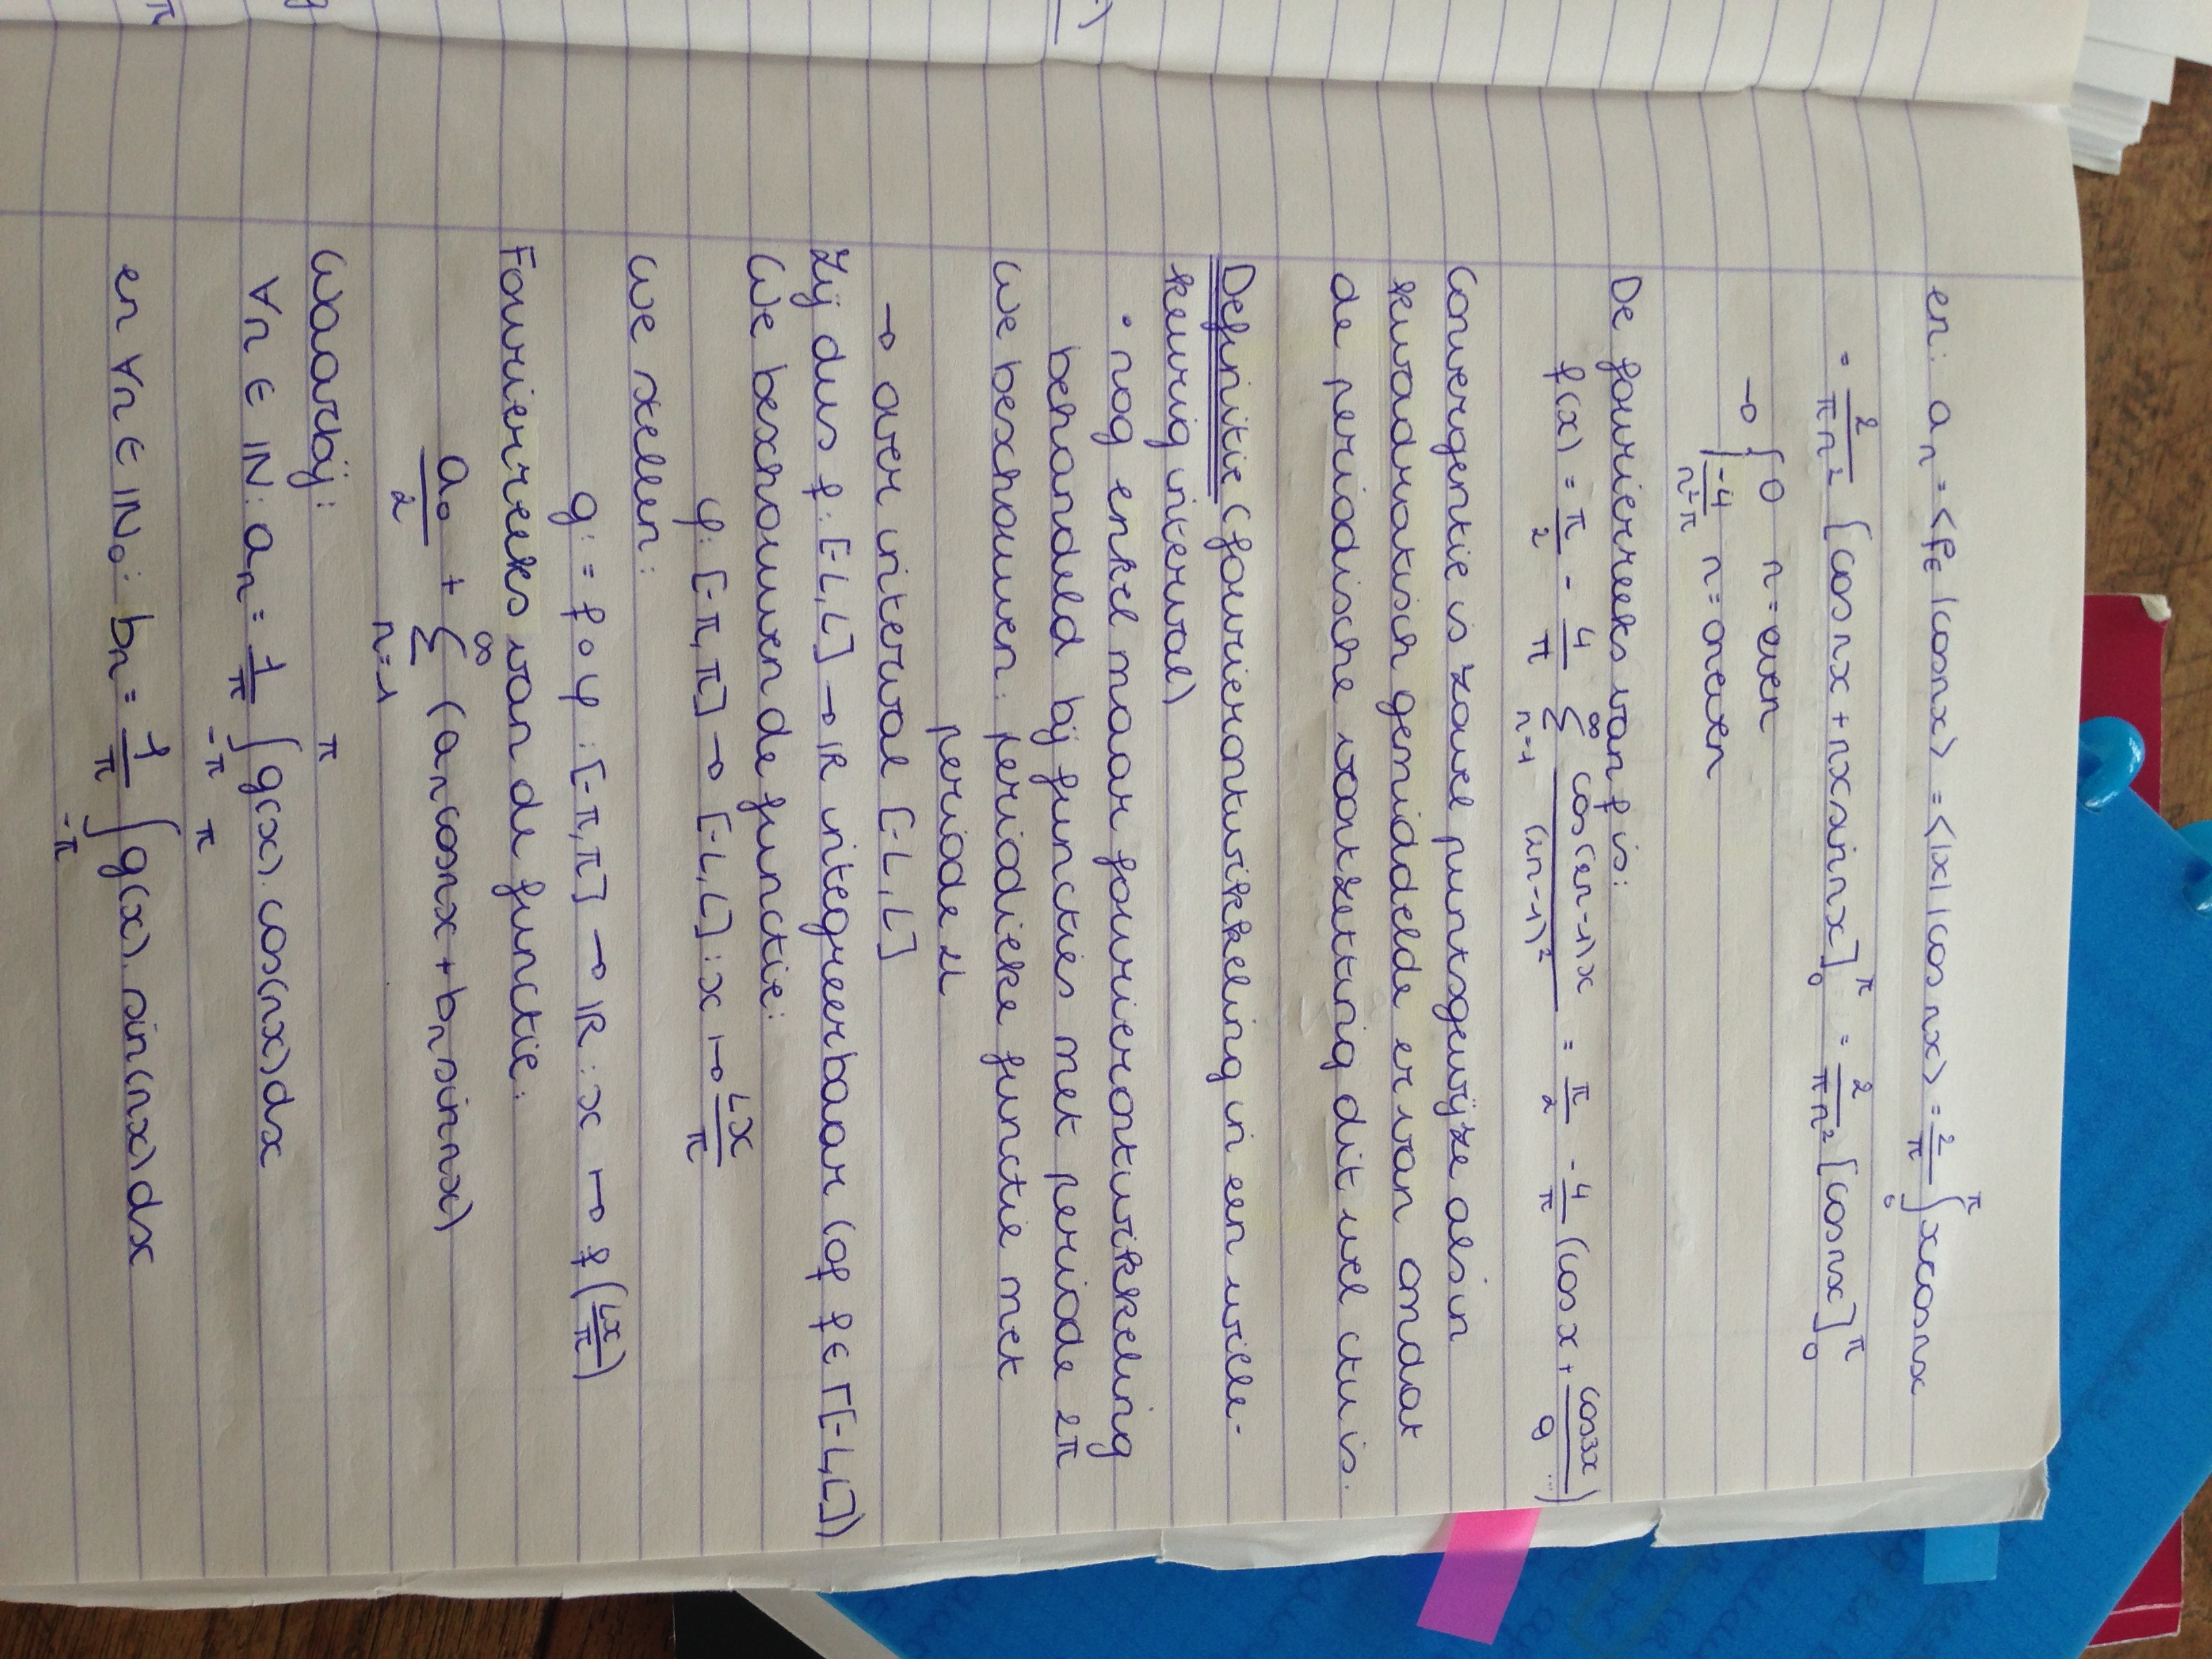 en: aₙ = <f_E |cosnx> = <|x| |cos nx> = 2/π ∫₀^π xcosnx
= 2/(πn²) [cosnx + nxsinnx]₀^π = 2/(πn²) [cosnx]₀^π
→ { 0 n = even
-4/(n²π) n = oneven
De fourierreeks van f is:
f(x) = π/2 - 4/π ∑_{n=1}^∞ cos(2n-1)x/(2n-1)² = π/2 - 4/π (cos x + cos3x/9 ...)
Convergentie is zowel puntsgewijze als in
kwadratisch gemiddelde ervan omdat
de periodische voortzetting dit wel ctu is.
Definitie (fourierontwikkeling in een wille-
keurig interval)
• nog enkel maar fourierontwikkeling
behandeld bij functies met periode 2π
We beschouwen: periodieke functie met
periode 2L
→ over interval [-L, L]
Zij dus f: [-L, L] → ℝ integreerbaar (of f ∈ Γ[-L, L])
We beschouwen de functie:
φ: [-π, π] → [-L, L] : x ↦ Lx/π
We stellen:
g: = f∘φ : [-π, π] → ℝ : x ↦ f(Lx/π)
Fourierreeks van de functie:
a₀/2 + ∑_{n=1}^∞ (aₙcosnx + bₙsinnx)
Waarbij:
∀n ∈ ℕ: aₙ = 1/π ∫_{-π}^π g(x). cos(nx)dx
en ∀n ∈ ℕ₀: bₙ = 1/π ∫_{-π}^π g(x). sin(nx)dx